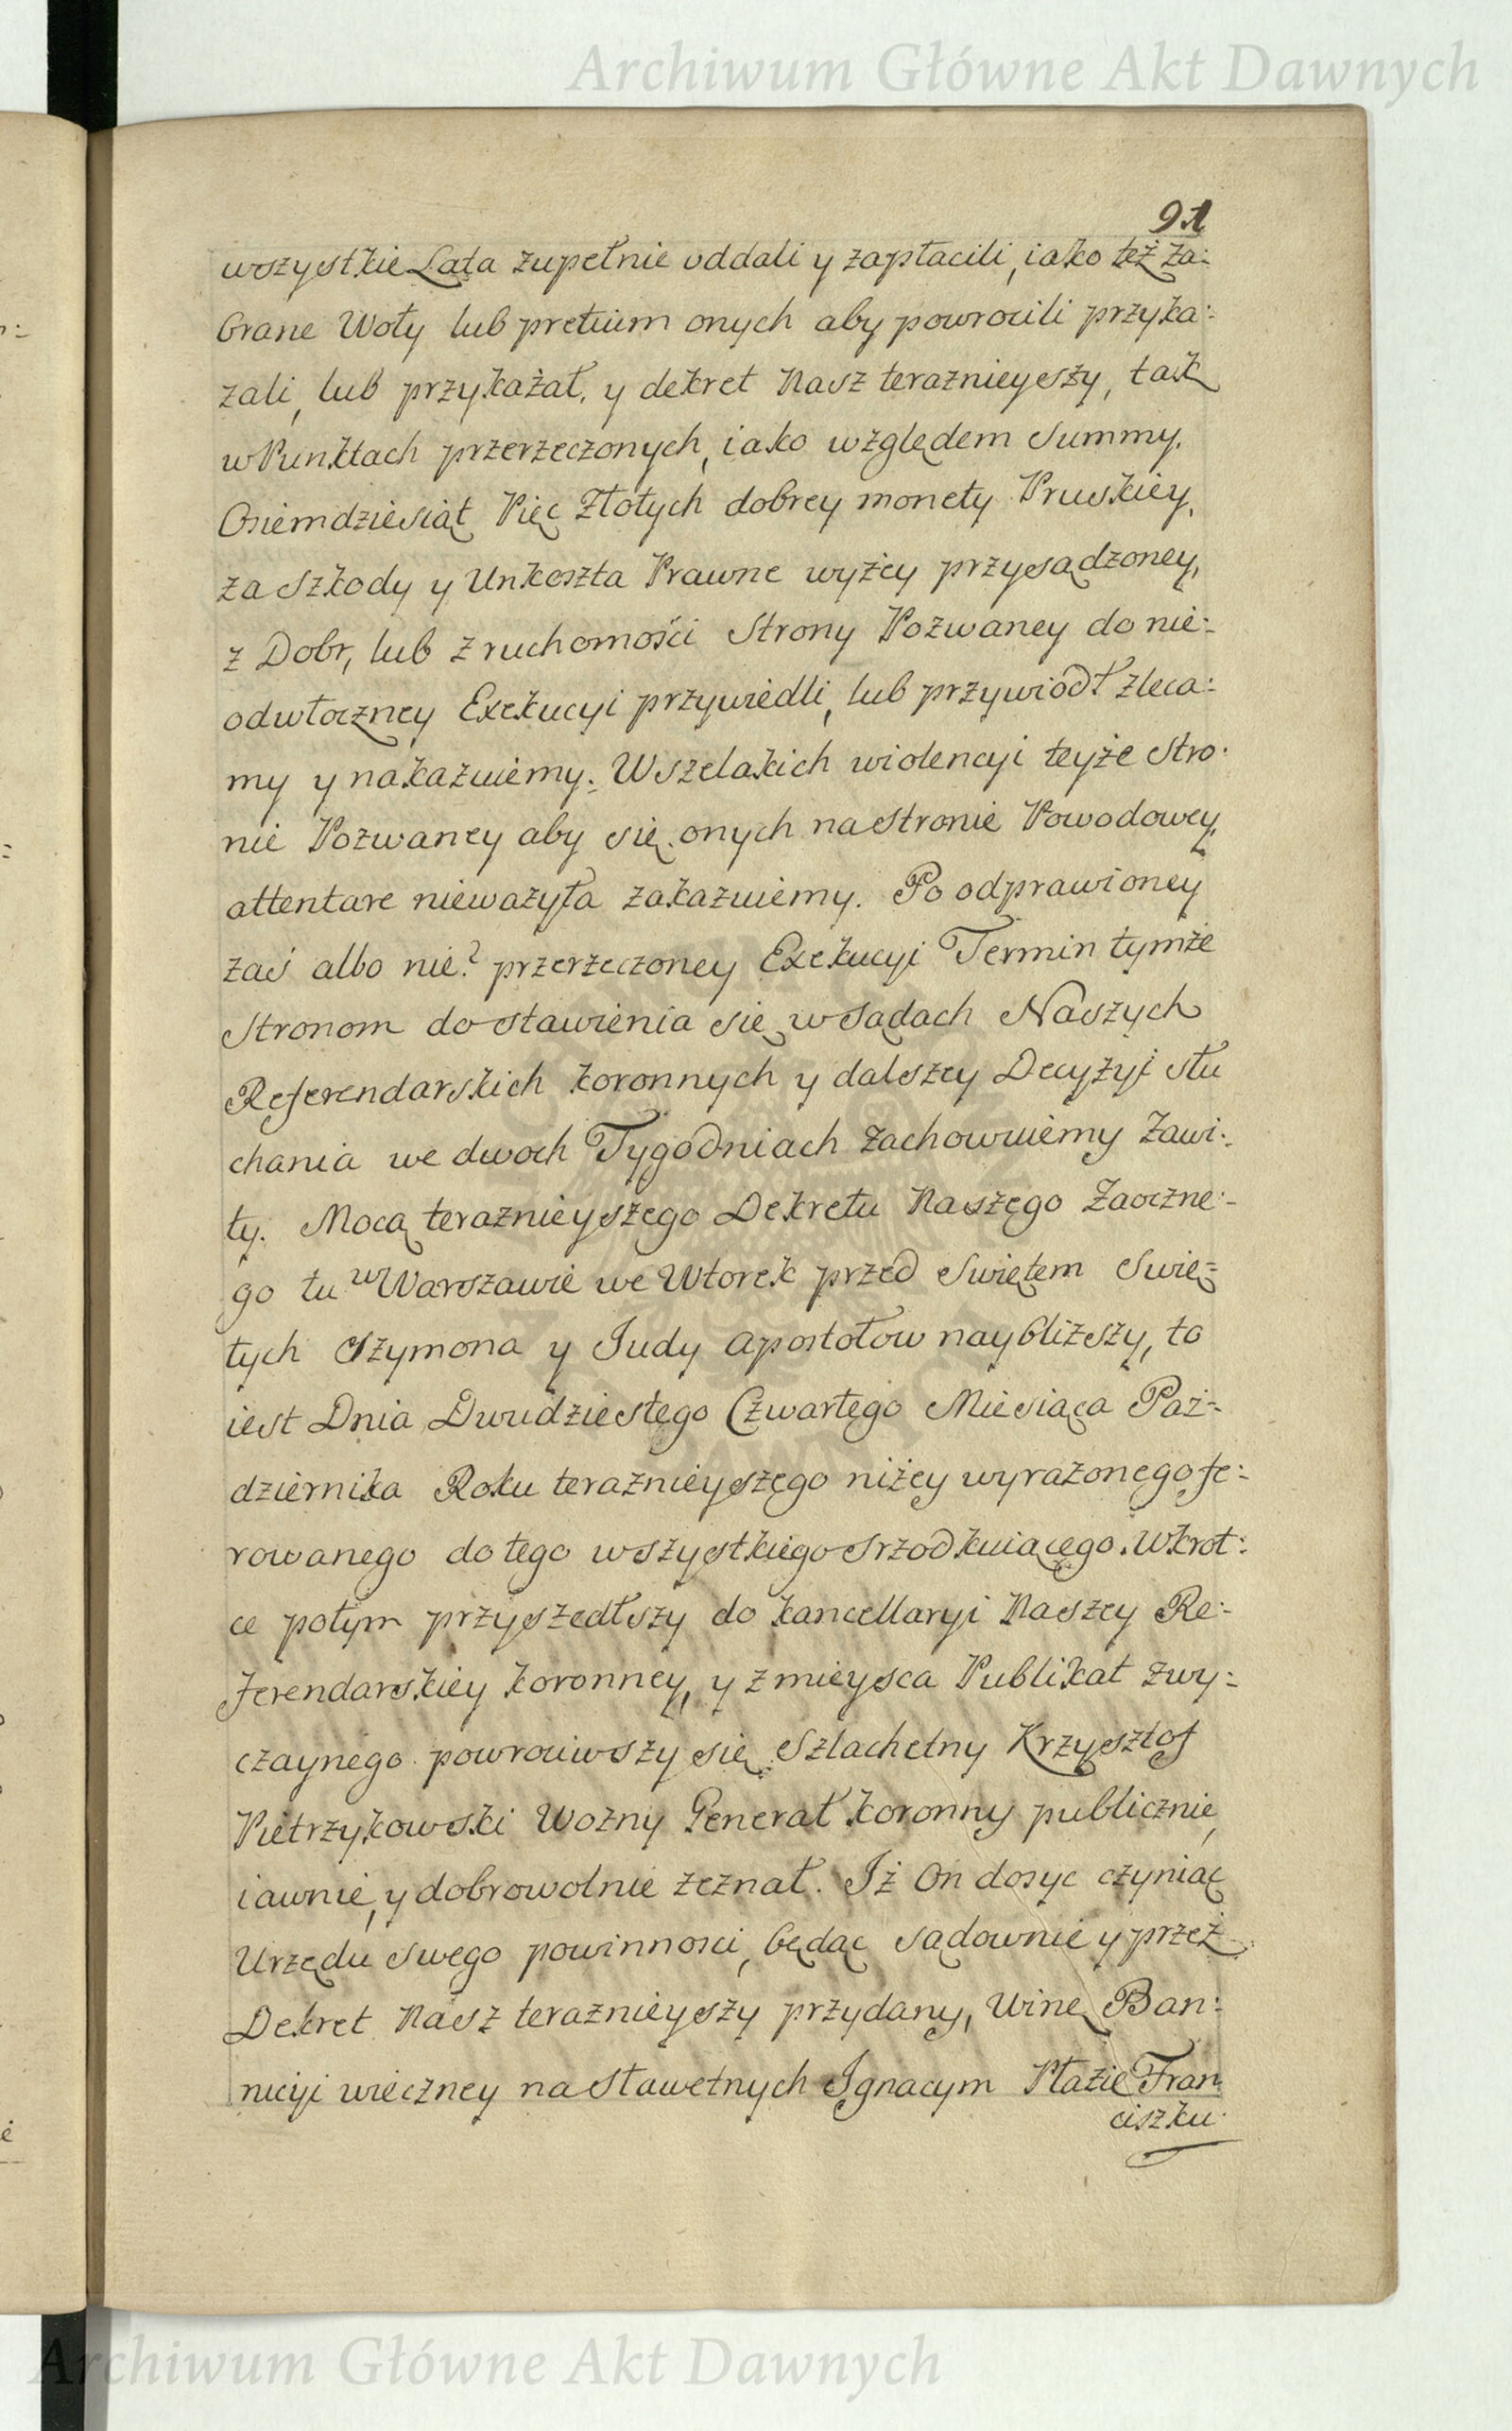 Archiwum Główne Akt Dawnych
91
wszystkie Lata zupełnie oddali y zapłacili, iako też za:
brane Woły lub pretium onych aby powrocili przyka:
zali, lub przykazał, y dekret Nasz teraznieyszy, tak
w Punktach przerzeczonych, iako względem Summy,
Osiemdziesiąt Pięc Złotych dobrey monety Pruskiey,
za Szkody y Unkoszta Prawne wyżey przysądzoney,
z Dobr, lub z ruchomości Strony Pozwaney do nie:
odwłoczney Exekucyi przywiedli, lub przywiodł zleca:
my y nakazuiemy. Wszelakich wiolencyi teyże Stro:
nie Pozwaney aby się onych na Stronie Powodowey,
attentare nieważyła zakazuiemy. Po odprawioney
zaś albo nie? przerzeczoney Exekucyi Termin tymże
Stronom do stawienia się w Sądach Naszych
Referendarskich koronnych y dalszey Decyzyi słu
chania we dwoch Tygodniach zachowuiemy Zawi:
ty. Mocą teraznieyszego Dekretu Naszego Zaoczne:
go tu w Warszawie we Wtorek przed Swiętem Swię:
tych Szymona y Judy Apostołow naybliższy, to
iest Dnia Dwudziestego Czwartego Miesiąca Paź:
dziernika Roku teraznieyszego niżey wyrażonego fe:
rowanego do tego wszystkiego srzodkuiącego. Wkrot:
ce potym przyszedłszy do kancellaryi Naszey Re:
ferendarskiey koronney, y z mieysca Publikat zwy:
czaynego powrociwszy się Szlachetny Krzysztof
Pietrzykowski Wozny Generał koronny publicznie,
iawnie, y dobrowolnie zeznał. Iż On dosyc czyniąc
Urzędu swego powinnosci, będąc sądownie y przez
Dekret Nasz teraznieyszy przydany, Winę Ban:
nicyi wieczney na Sławetnych Ignacym Płazie Fran
ciszku
Archiwum Główne Akt Dawnych